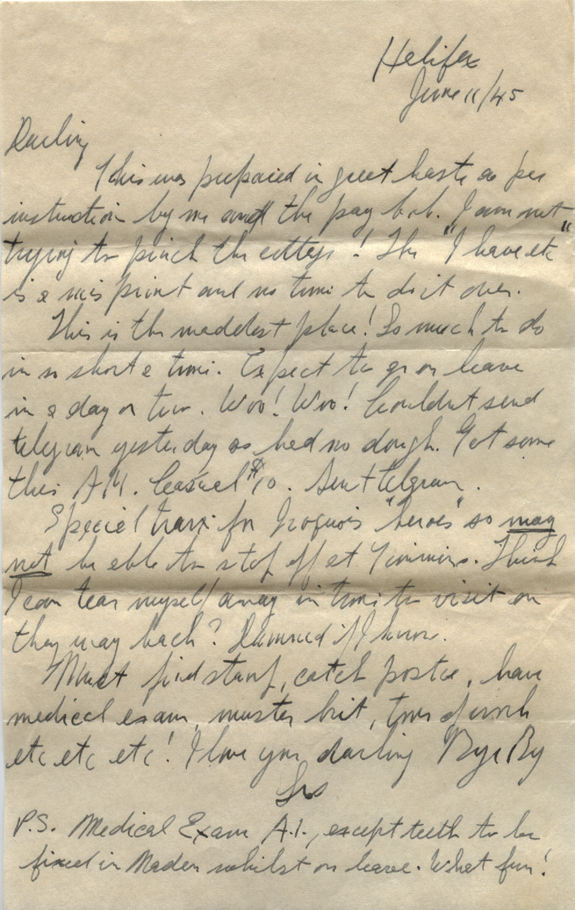 Halifax
June 11/45
Darling
This was prepared in great haste as per
instruction by me and the pay bob. I am not
trying to pinch the cottage! The "I have etc"
is a misprint and no time to do it over.
This is the maddest place! So much to do
in so short a time. Expect to go on leave
in a day or two. Woo! Woo! Couldn't send
telegram yesterday as had no dough. Got some
this A.M. Casual $10. Sent telegram.
Special train for Iroquois "heroes" so may
not be able to stop off at Timmins. Think
I can tear myself away in time to visit on
they way back? Damned if I know.
Must find stamp, catch postie, have
medical exam, muster kit, turn of work
etc etc etc! I love you, darling Bye Bye
P.S. Medical Exam A.1., except teeth to be
fixed in whilst on leave. What fun!